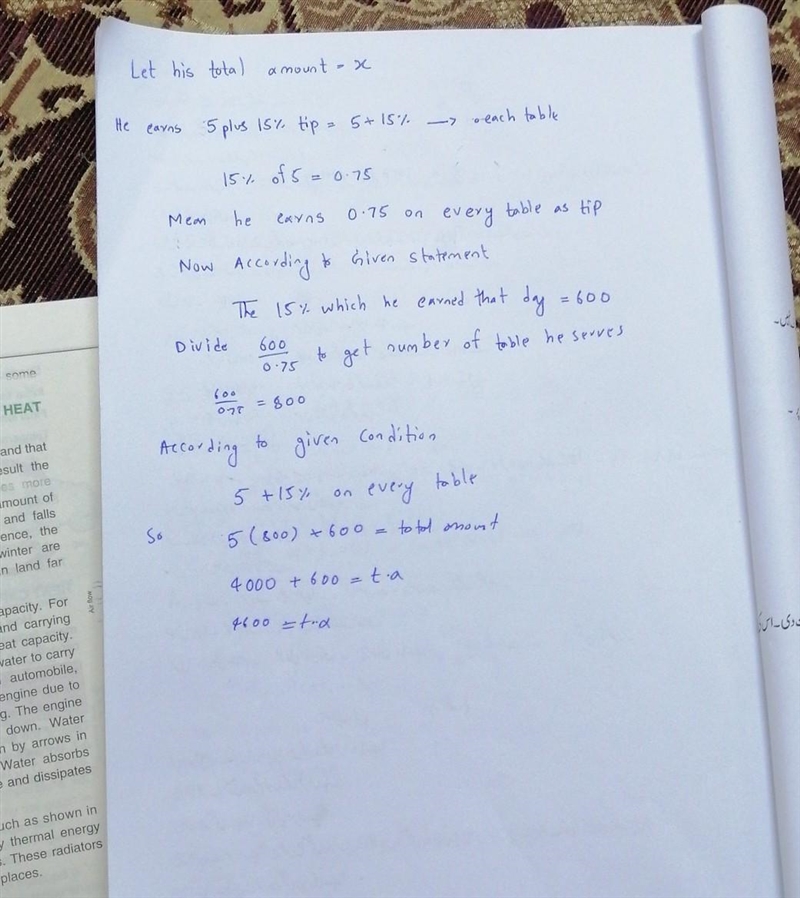 Let his total amount = x
He earns 5 plus 15% tip = 5 + 15% → each table
15% of 5 = 0.75
Mean he earns 0.75 on every table as tip
Now According to Given statement
The 15% which he earned that day = 600
Divide 600/0.75 to get number of table he serves
600/0.75 = 800
According to given condition
5 + 15% on every table
So 5(800) + 600 = total amount
4000 + 600 = t.a
4600 = t.a
some
HEAT
and that
esult the
es more
amount of
and falls
ence, the
winter are
n land far
Air flow
apacity. For
and carrying
eat capacity.
water to carry
automobile,
engine due to
g. The engine
down. Water
n by arrows in
Water absorbs
e and dissipates
uch as shown in
y thermal energy
s. These radiators
places.